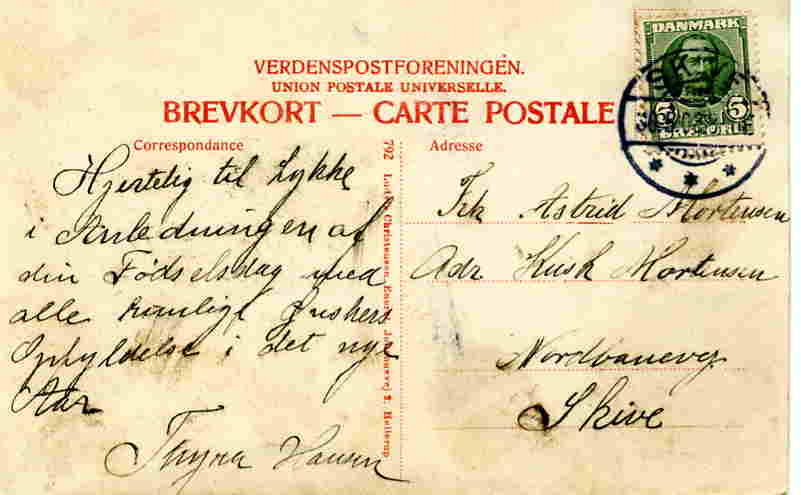 DANMARK
5 5
VERDENSPOSTFORENINGEN.
UNION POSTALE UNIVERSELLE.
BREVKORT — CARTE POSTALE
Correspondance
Hjertelig til Lykke
i Anledningen af
din Fødselsdag med
alle Ønskers
Opfyldelse i det nye
Aar
Thyra Hansen
792
Christensen,
Hellerup.
Adresse
Frk Astrid Mortensen
Adr Kusk Mortensen
Nordbanevej
Skive